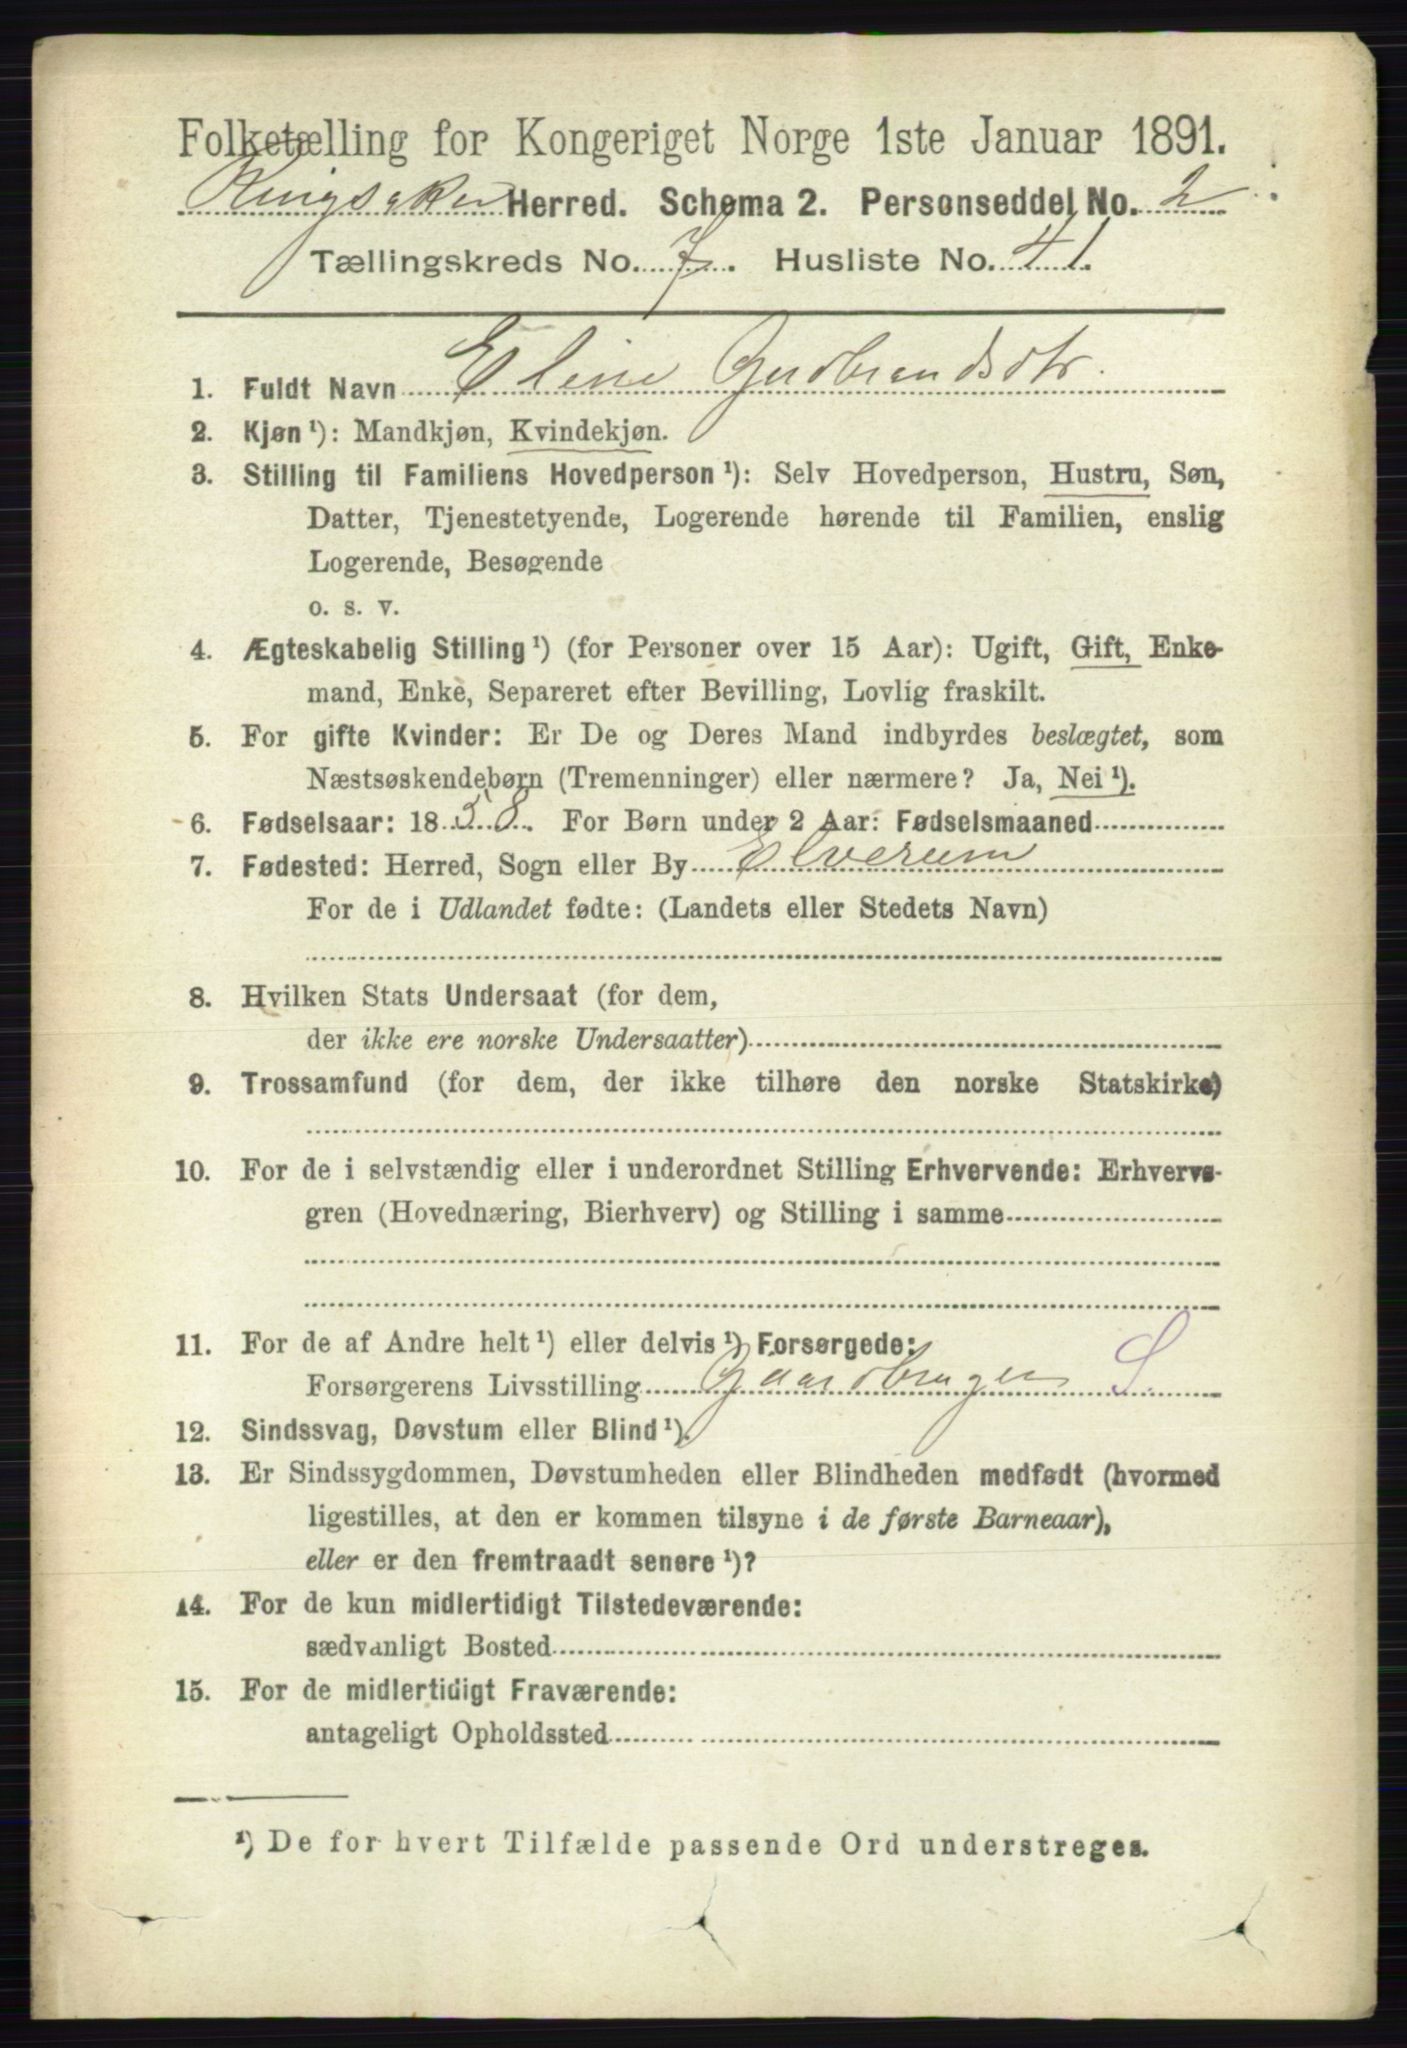 Folketælling for Kongeriget Norge 1ste Januar 1891.
Ringsaker Herred. Schema 2. Personseddel No. 2
Tællingskreds No. 7. Husliste No. 41.
1. Fuldt Navn Eline Gudbrandsdtr.
2. Kjøn¹): Mandkjøn, Kvindekjøn.
3. Stilling til Familiens Hovedperson¹): Selv Hovedperson, Hustru, Søn,
Datter, Tjenestetyende, Logerende hørende til Familien, enslig
Logerende, Besøgende
o. s. v.
4. Ægteskabelig Stilling¹) (for Personer over 15 Aar): Ugift, Gift, Enke-
mand, Enke, Separeret efter Bevilling, Lovlig fraskilt.
5. For gifte Kvinder: Er De og Deres Mand indbyrdes beslægtet, som
Næstsøskendebørn (Tremenninger) eller nærmere? Ja, Nei¹).
6. Fødselsaar: 1858. For Børn under 2 Aar: Fødselsmaaned
7. Fødested: Herred, Sogn eller By Elverum
For de i Udlandet fødte: (Landets eller Stedets Navn)
8. Hvilken Stats Undersaat (for dem,
der ikke ere norske Undersaatter)
9. Trossamfund (for dem, der ikke tilhøre den norske Statskirke)
10. For de i selvstændig eller i underordnet Stilling Erhvervende: Erhvervs-
gren (Hovednæring, Bierhverv) og Stilling i samme
11. For de af Andre helt¹) eller delvis¹) Forsørgede:
Forsørgerens Livsstilling Gaardbruger S.
12. Sindssvag, Døvstum eller Blind¹).
13. Er Sindssygdommen, Døvstumheden eller Blindheden medfødt (hvormed
ligestilles, at den er kommen tilsyne i de første Barneaar),
eller er den fremtraadt senere¹)?
14. For de kun midlertidigt Tilstedeværende:
sædvanligt Bosted
15. For de midlertidigt Fraværende:
antageligt Opholdssted
¹) De for hvert Tilfælde passende Ord understreges.